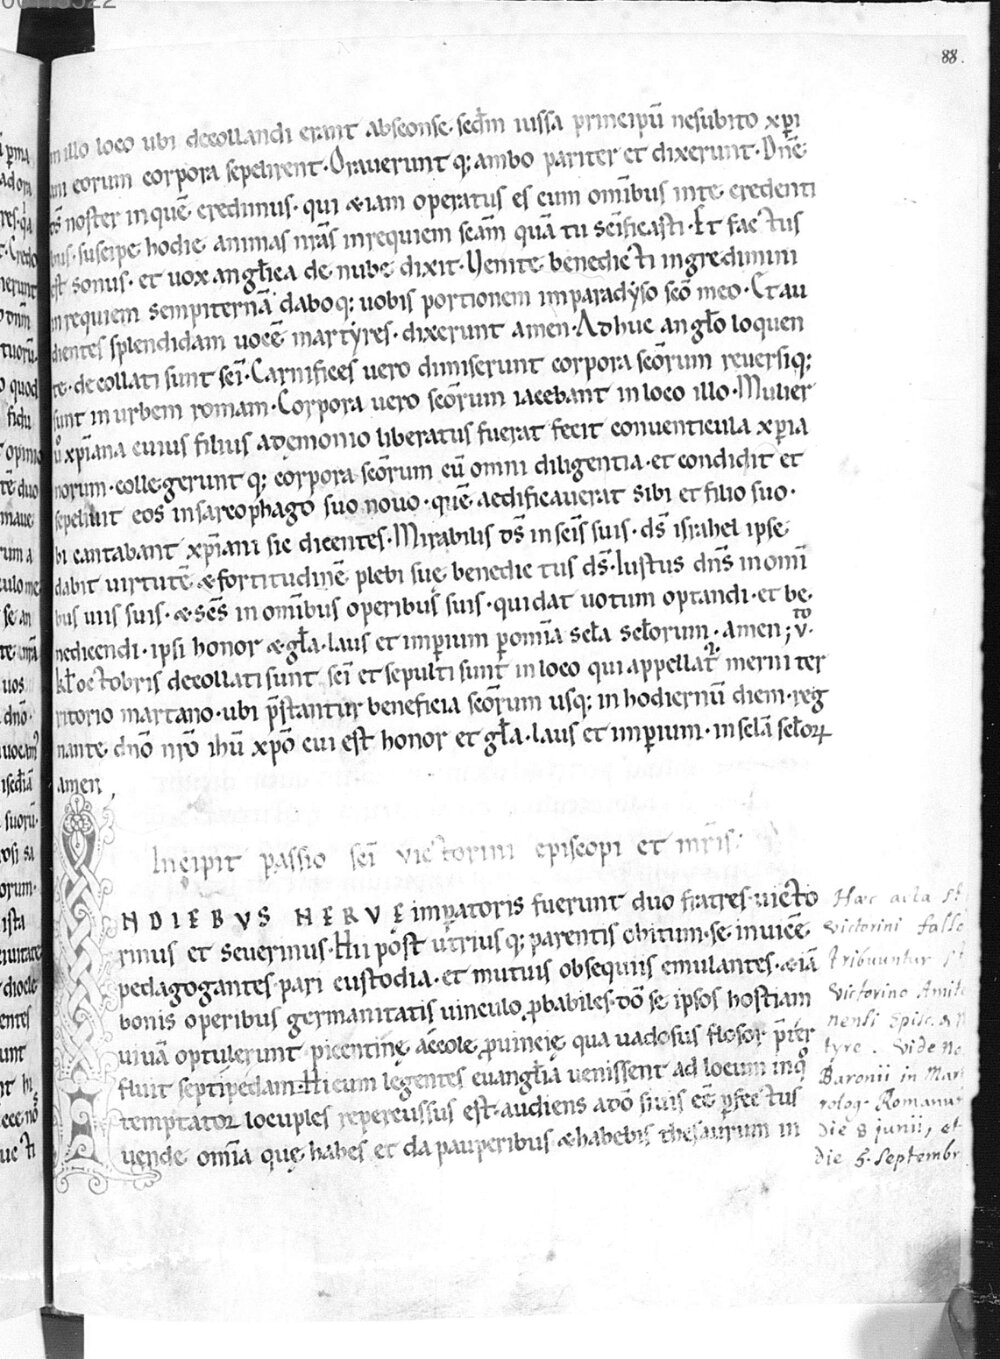 88.
in illo loco ubi decollandi erant absconse. secđm iussa principū nesubito xp̄i
ani eorum corpora sepelirent. Oraverunt q; ambo pariter et dixerunt. Dn̄e
ds̄ noster inquē credimus. qui &iam operatus es cum omībus inte credenti
bus. suscipe hodie animas nr̄as inrequiem scām quā tu sc̄ificasti. Et factus
est sonus. et uox anglica de nube dixit. Uenite benedicti ingredimini
inrequiem sempiternā daboq; uobis portionem imparadyso scō meo. Et au
dientes splendidam uocē martyres. dixerunt amen. Adhuc anglo loquen
te. decollati sunt sc̄i. Carnifices uero dimiserunt corpora scōrum reuersiq;
sunt in urbem romam. Corpora uero scōrum iacebant in loco illo. Mulier
u° xp̄iana cuius filius ademonio liberatus fuerat fecit conuenticula xp̄ia
norum. collegerunt q; corpora scōrum cū omni diligentia. et condidit et
sepeliuit eos insarcophago suo nouo. quē aedificauerat sibi et filio suo.
bi cantabant xp̄iani sic dicentes. Mirabilis ds̄ in sc̄is suis. ds̄ israhel ipse
dabit uirtutē & fortitudinē plebi suę benedictus ds̄. Iustus dn̄s in omī
bus uiis suis. & sc̄s in omībus operibus suis. qui dat uotum optandi. et be
nedicendi. ipsi honor & glā. laus et imperium p omīa scla sclorum. amen; v.to
kl octobris decollati sunt sc̄i et sepulti sunt in loco qui appellat̄ merni ter
ritorio martano. ubi p̄stantur beneficia scōrum usq; in hodiernū diem. reg
nante dnō nrō ihū xpō cui est honor et glā. laus et imperium. in sclā sclorꝝ
amen,
Incipit passio sc̄i victorini episcopi et mr̄is.
IN DIEBVS NERVĘ imperatoris fuerunt duo fratres. uicto
rinus et Seuerinus. Hii post utriusq; parentis obitum. se inuicē
pedagogantes. pari custodia. et mutuis obsequiis emulantes. &iā
bonis operibus germanitatis uinculo ꝓbabiles. dō se ipsos hostiam
uiuā optulerunt. picentinę accole ꝓuincię qua uadosus flosor p̄ter
fluit septipedam. Hi cum legentes euangliā uenissent ad locum in q°
temptator locuples repercussus est. audiens adō siuis eē pfectus
uende omīa quę habes et da pauperibus & habebis thesaurum in
Hæc acta Sti
Victorini falso
tribuuntur
Victorino Amite
nensi Episc. &
tyre. Vide
Baronii in Mar
rolog. Romanu
die 8 junii, et
die 5. Septembr